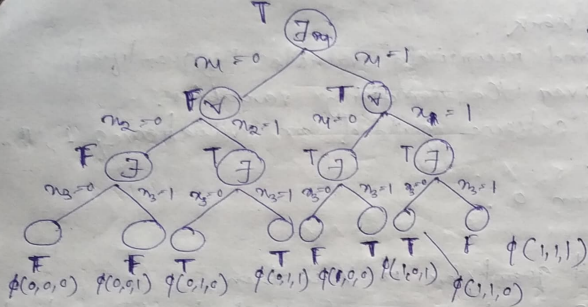 T
∃x1
x1=0 x1=1
F ∀ T ∀
x2=0 x2=1 x1=0 x1=1
F ∃ T ∃ T ∃ T ∃
x3=0 x3=1 x3=0 x3=1 x3=0 x3=1 x3=0 x3=1
F F T T F T T F
ϕ(0,0,0) ϕ(0,0,1) ϕ(0,1,0) ϕ(0,1,1) ϕ(1,0,0) ϕ(1,0,1) ϕ(1,1,0) ϕ(1,1,1)